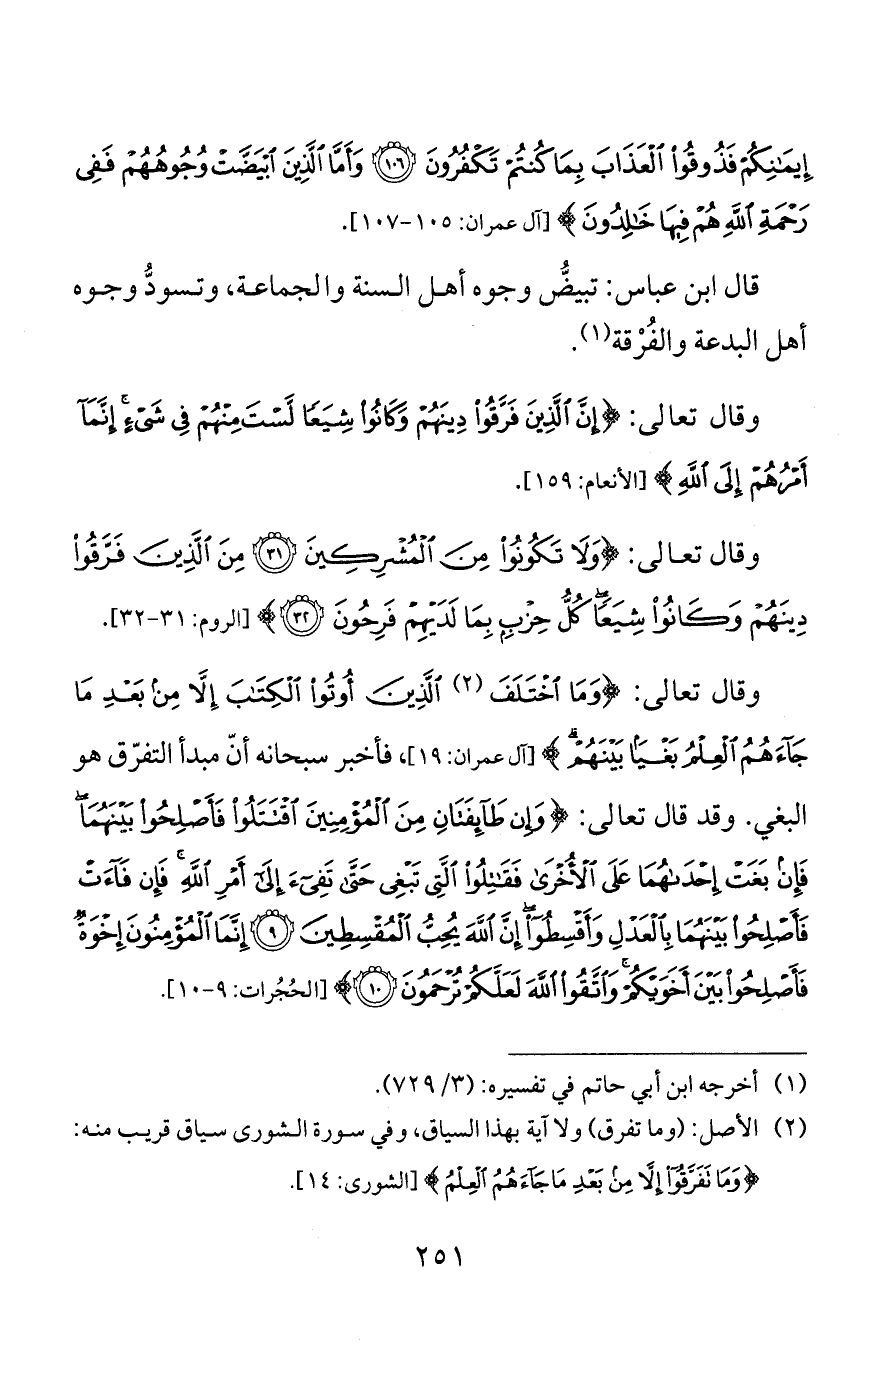 إِيمَٰنِكُمْ فَذُوقُوا۟ ٱلْعَذَابَ بِمَا كُنتُمْ تَكْفُرُونَ ۝١٠٦ وَأَمَّا ٱلَّذِينَ ٱبْيَضَّتْ وُجُوهُهُمْ فَفِى
رَحْمَةِ ٱللَّهِ هُمْ فِيهَا خَٰلِدُونَ ﴾ [آل عمران: ١٠٥-١٠٧].
قال ابن عباس: تبيضُّ وجوه أهل السنة والجماعة، وتسودُّ وجوه
أهل البدعة والفُرْقة(١).
وقال تعالى: ﴿ إِنَّ ٱلَّذِينَ فَرَّقُوا۟ دِينَهُمْ وَكَانُوا۟ شِيَعًا لَّسْتَ مِنْهُمْ فِى شَىْءٍ ۚ إِنَّمَآ
أَمْرُهُمْ إِلَى ٱللَّهِ ﴾ [الأنعام: ١٥٩].
وقال تعالى: ﴿وَلَا تَكُونُوا۟ مِنَ ٱلْمُشْرِكِينَ ۝٣١ مِنَ ٱلَّذِينَ فَرَّقُوا۟
دِينَهُمْ وَكَانُوا۟ شِيَعًا ۖ كُلُّ حِزْبٍۭ بِمَا لَدَيْهِمْ فَرِحُونَ ۝٣٢﴾ [الروم: ٣١-٣٢].
وقال تعالى: ﴿وَمَا ٱخْتَلَفَ (٢) ٱلَّذِينَ أُوتُوا۟ ٱلْكِتَٰبَ إِلَّا مِنۢ بَعْدِ مَا
جَآءَهُمُ ٱلْعِلْمُ بَغْيًۢا بَيْنَهُمْ ۗ ﴾ [آل عمران: ١٩]، فأخبر سبحانه أنّ مبدأ التفرّق هو
البغي. وقد قال تعالى: ﴿ وَإِن طَآئِفَتَانِ مِنَ ٱلْمُؤْمِنِينَ ٱقْتَتَلُوا۟ فَأَصْلِحُوا۟ بَيْنَهُمَا ۖ
فَإِنۢ بَغَتْ إِحْدَىٰهُمَا عَلَى ٱلْأُخْرَىٰ فَقَٰتِلُوا۟ ٱلَّتِى تَبْغِى حَتَّىٰ تَفِىٓءَ إِلَىٰٓ أَمْرِ ٱللَّهِ ۚ فَإِن فَآءَتْ
فَأَصْلِحُوا۟ بَيْنَهُمَا بِٱلْعَدْلِ وَأَقْسِطُوٓا۟ ۖ إِنَّ ٱللَّهَ يُحِبُّ ٱلْمُقْسِطِينَ ۝٩ إِنَّمَا ٱلْمُؤْمِنُونَ إِخْوَةٌ
فَأَصْلِحُوا۟ بَيْنَ أَخَوَيْكُمْ ۚ وَٱتَّقُوا۟ ٱللَّهَ لَعَلَّكُمْ تُرْحَمُونَ ۝١٠﴾ [الحُجُرات: ٩-١٠].
(١) أخرجه ابن أبي حاتم في تفسيره: (٣/ ٧٢٩).
(٢) الأصل: (وما تفرق) ولا آية بهذا السياق، وفي سورة الشورى سياق قريب منه:
﴿وَمَا تَفَرَّقُوٓا۟ إِلَّا مِنۢ بَعْدِ مَا جَآءَهُمُ ٱلْعِلْمُ ﴾ [الشورى: ١٤].
٢٥١